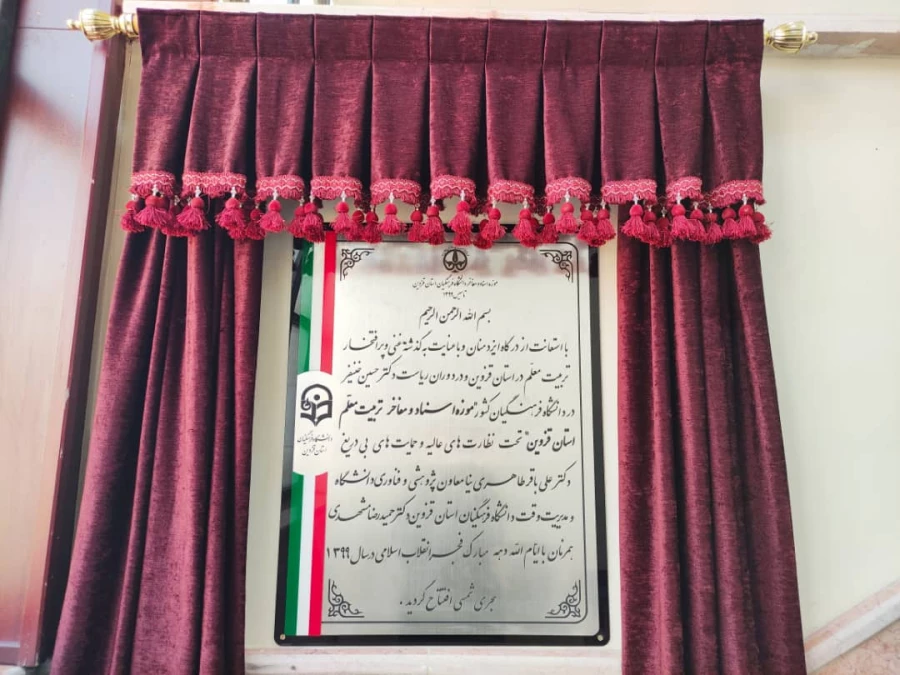 موزه اسناد و مفاخر دانشگاه فرهنگیان استان قزوین
تاسیس ۱۳۹۹
بسم الله الرحمن الرحیم
با استعانت از درگاه ایزد منان و با عنایت به گذشته غنی و پر افتخار
تربیت معلم در استان قزوین و در دوران ریاست دکتر حسین خنیفر
در دانشگاه فرهنگیان کشور "موزه اسناد و مفاخر تربیت معلم
استان قزوین" تحت نظارت های عالیه و حمایت های بی دریغ
دکتر علی باقر طاهری نیا معاون پژوهشی و فناوری دانشگاه
و مدیریت وقت دانشگاه فرهنگیان استان قزوین دکتر حمیدرضا مشهدی
همزمان با ایام الله دهه مبارک فجر انقلاب اسلامی در سال ۱۳۹۹
هجری شمسی افتتاح گردید .
دانشگاه فرهنگیان
استان قزوین